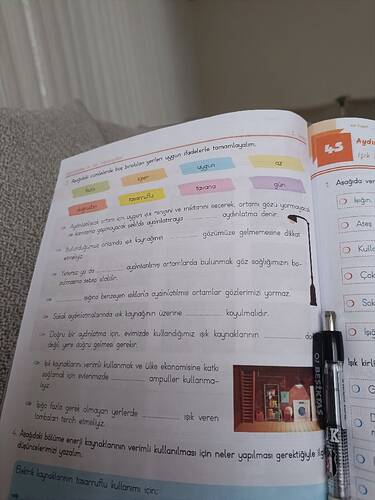 3. Aşağıdaki cümlelerde boş bırakılan yerleri uygun ifadelerle tamamlayalım.
fazla siper uygun az
doğrudan tasarruflu tavana gün
Aydınlatılacak ortam için uygun ışık rengini ve miktarını seçerek, ortamı gözü yormayacak
ve kamaşma yapmayacak şekilde aydınlatmaya aydınlatma denir.
Bulunduğumuz ortamda ışık kaynağının gözümüze gelmemesine dikkat
etmeliyiz.
Yetersiz ya da aydınlatılmış ortamlarda bulunmak göz sağlığımızın bo-
zulmasına sebep olabilir.
ışığına benzeyen ışıklarla aydınlatılmış ortamlar gözlerimizi yormaz.
Sokak aydınlatmalarında ışık kaynağının üzerine koyulmalıdır.
Doğru bir aydınlatma için, evimizde kullandığımız ışık kaynaklarının
değil, yere doğru gelmesi gerekir.
Işık kaynaklarını verimli kullanmak ve ülke ekonomisine katkı
sağlamak için evlerimizde ampuller kullanma-
lıyız.
Işığa fazla gerek olmayan yerlerde ışık veren
lambaları tercih etmeliyiz.
4. Aşağıdaki bölüme enerji kaynaklarının verimli kullanılması için neler yapılması gerektiğiyle ilgili
düşüncelerimizi yazalım.
Elektrik kaynaklarının tasarruflu kullanımı için:
45
Aydı
Işık
1. Aşağıda ver
Işığın
Ateş
Kulla
Çok
Sok
Işı
Işık kirli
BEŞİKTAŞ